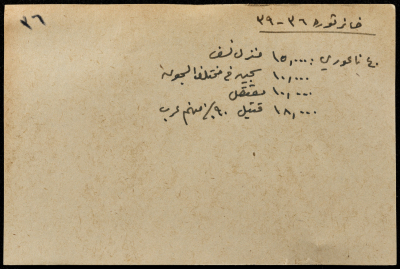 ٣٦
خسائر ثورة ٣٦ - ٣٩
ناعوري: ١٥,٠٠٠ منزل نسف
١٠,٠٠٠ سجين في مختلف السجون
١٠,٠٠٠ معتقل
١٨,٠٠٠ قتيل ٩٠٪ منهم عرب